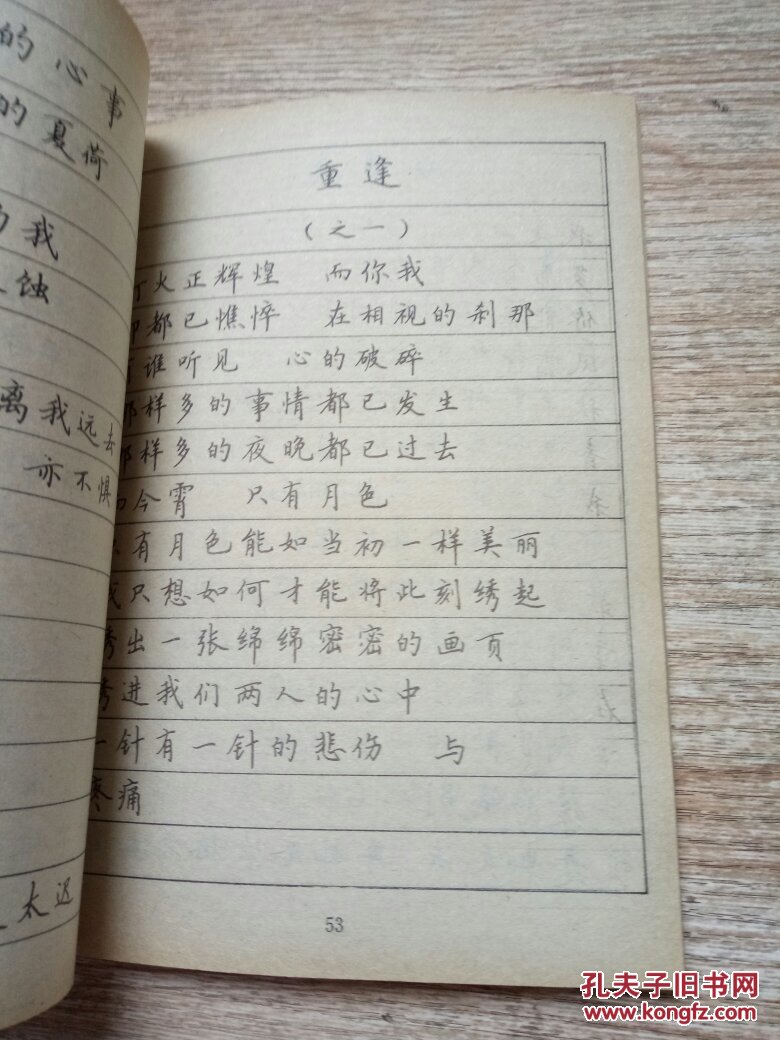 的心事
的夏荷
我
蚀
离我远去
亦不惧
太迟
重逢
(之一)
火正辉煌 而你我
都已憔悴 在相视的刹那
谁听见 心的破碎
那样多的事情都已发生
那样多的夜晚都已过去
今霄 只有月色
只有月色能如当初一样美丽
我只想如何才能将此刻绣起
绣出一张绵绵密密的画页
绣进我们两人的心中
一针有一针的悲伤 与
疼痛
53
孔夫子旧书网
www.kongfz.com